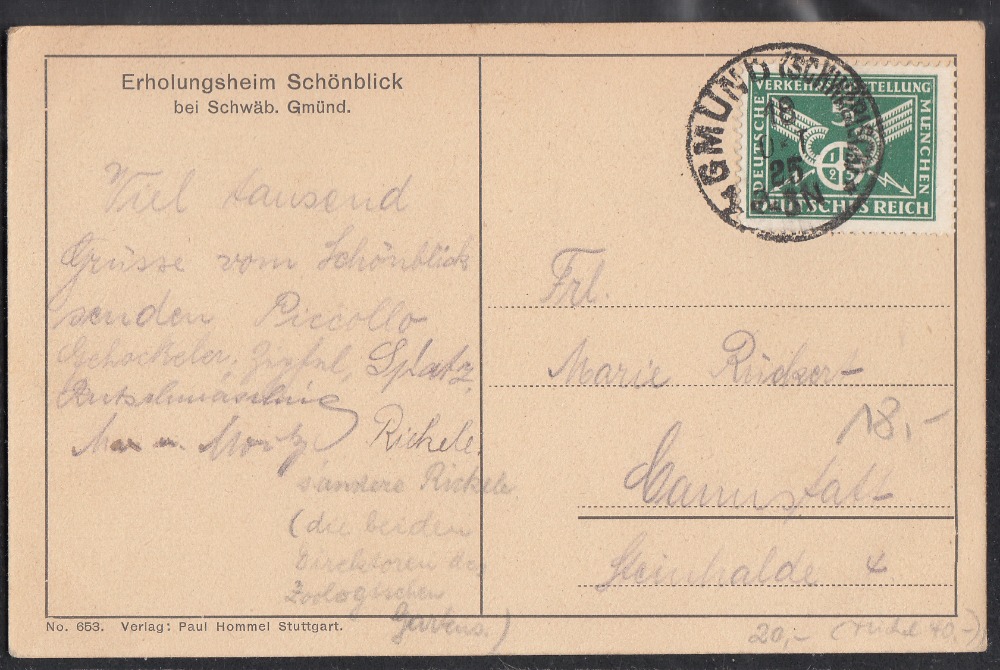 Erholungsheim Schönblick
bei Schwäb. Gmünd.
Viel tausend
Grüsse vom Schönblick
senden Piccollo
Gehockeler, Spatz
Max u. Moritz Rickele
s'andere Rickele
(die beiden
Direktoren des
Zoologischen
Gartens.)
No. 653. Verlag: Paul Hommel Stuttgart.
GMÜND (SCHWÄB)
18
25
N
DEUTSCHE VERKEHRSAUSSTELLUNG MUENCHEN
5 5
1925
DEUTSCHES REICH
Frl.
Marie Rückert
18,-
Cannstatt
Steinhalde 4
20,- (Michel 40,-)